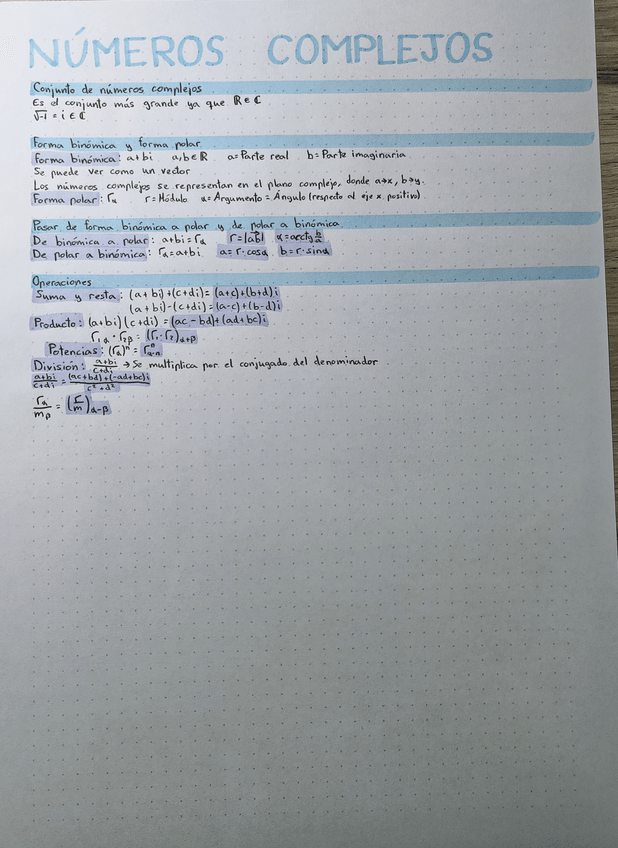 NÚMEROS COMPLEJOS
Conjunto de números complejos
Es el conjunto más grande ya que ℝ∈ℂ
√-1 = i ∈ ℂ
Forma binómica y forma polar
Forma binómica: a+bi a,b∈ℝ a=Parte real b=Parte imaginaria
Se puede ver como un vector
Los números complejos se representan en el plano complejo, donde a→x, b→y.
Forma polar: r_α r=Módulo α=Argumento=Ángulo (respecto al eje x positivo)
Pasar de forma binómica a polar y de polar a binómica
De binómica a polar: a+bi=r_α r=|ab| α=arctg b/a
De polar a binómica: r_α=a+bi a=r·cosα b=r·sinα
Operaciones
Suma y resta: (a+bi)+(c+di)=(a+c)+(b+d)i
(a+bi)-(c+di)=(a-c)+(b-d)i
Producto: (a+bi)(c+di)=(ac-bd)+(ad+bc)i
r_1α·r_2β=(r_1·r_2)_α+β
Potencias: (r_α)^n=r^n_α·n
División: (a+bi)/(c+di) → Se multiplica por el conjugado del denominador
(a+bi)/(c+di)=((ac+bd)+(-ad+bc)i)/(c²+d²)
r_α/m_β=(r/m)_α-β